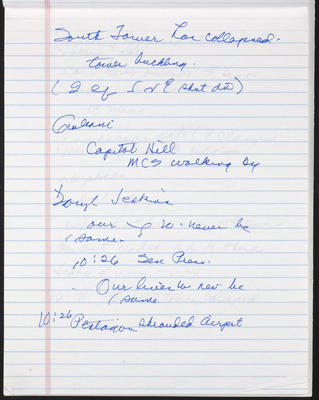 South Tower has collapsed.
tower buckling.
(2 of 5 shot dn)
Giuliani
Capitol Hill
MCS walking by
Daryl Jenkins
our never be
same.
10:26 Sen Press.
Our lives nev be
same
10:26 Pentagon shrouded Airport